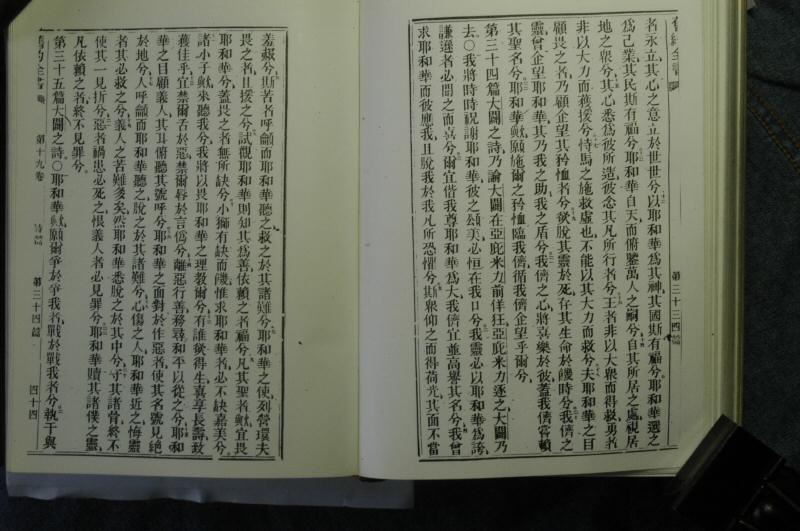 舊約全書 第三十三四篇
者永立其心之意立於世世兮以耶和華爲其神其國斯有福兮耶和華選之
爲己業其民斯有福兮耶和華自天而俯鑒萬人之嗣兮自其所居之處視居
地之眾兮其心悉爲彼所造彼念其凡所行者兮王者非以大眾而得救勇者
非以大力而獲援兮恃馬之施救虛也不能以其大力而救兮夫耶和華之目
顧畏之者乃顧企望其矜恤者兮欲脫其靈於死存其生命於饑時兮我儕之
靈曾企望耶和華其乃我之助我之盾兮我儕之心將喜樂於彼蓋我儕嘗頼
其聖名兮耶和華歟願施爾之矜恤臨我儕循我儕企望乎爾兮
第三十四篇大闢之詩乃論大闢在亞庇米力前佯狂亞庇米力逐之大闢乃
去○我將時時祝謝耶和華彼之頌美必恒在我口兮我靈必以耶和華爲誇
謙遜者必聞之而喜兮爾宜偕我尊耶和華爲大我儕宜並高舉其名兮我曾
求耶和華而彼應我且脫我於我凡所恐懼兮斯眾仰之而得荷光其面不當
羞赧兮斯苦者呼籲而耶和華聽之救之於其諸難兮耶和華之使列營環夫
畏之者且援之兮試觀耶和華則知其爲善依賴之者福兮凡其聖者歟宜畏
耶和華兮蓋畏之者無所缺兮小獅有缺而饑惟求耶和華者必不缺嘉美兮
諸小子歟來聽我兮我將以畏耶和華之理教爾兮有誰欲得生喜享長壽致
獲佳乎宜禁爾舌於惡禁爾脣於言僞兮離惡行善務尋和平以從之兮耶和
華之目顧義人其耳俯聽其號呼兮耶和華之面對於作惡者使其名號見絕
於地兮人呼籲而耶和華聽之脫之於其諸難兮心傷之人耶和華近之悔靈
者其必救之兮義人之苦難多矣然耶和華悉脫之於其中兮守其諸骨終不
使其一見折兮惡者禍患必死之恨義人者必見罪兮耶和華贖其諸僕之靈
凡依賴之者終不見罪兮
第三十五篇大闢之詩○耶和華歟願爾爭於爭我者戰於戰我者兮執干與
舊約全書 第十九卷 詩篇 第三十四篇 四十四